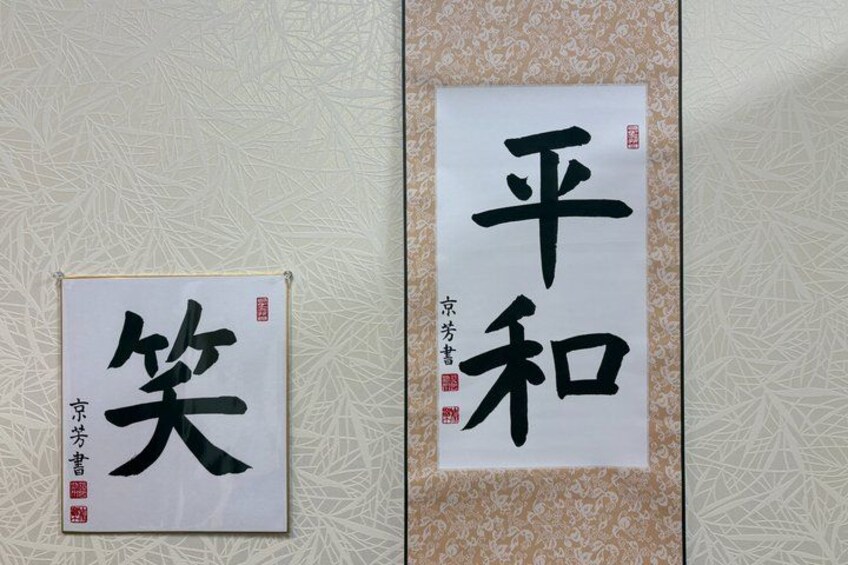 平和
京芳書
笑
京芳書